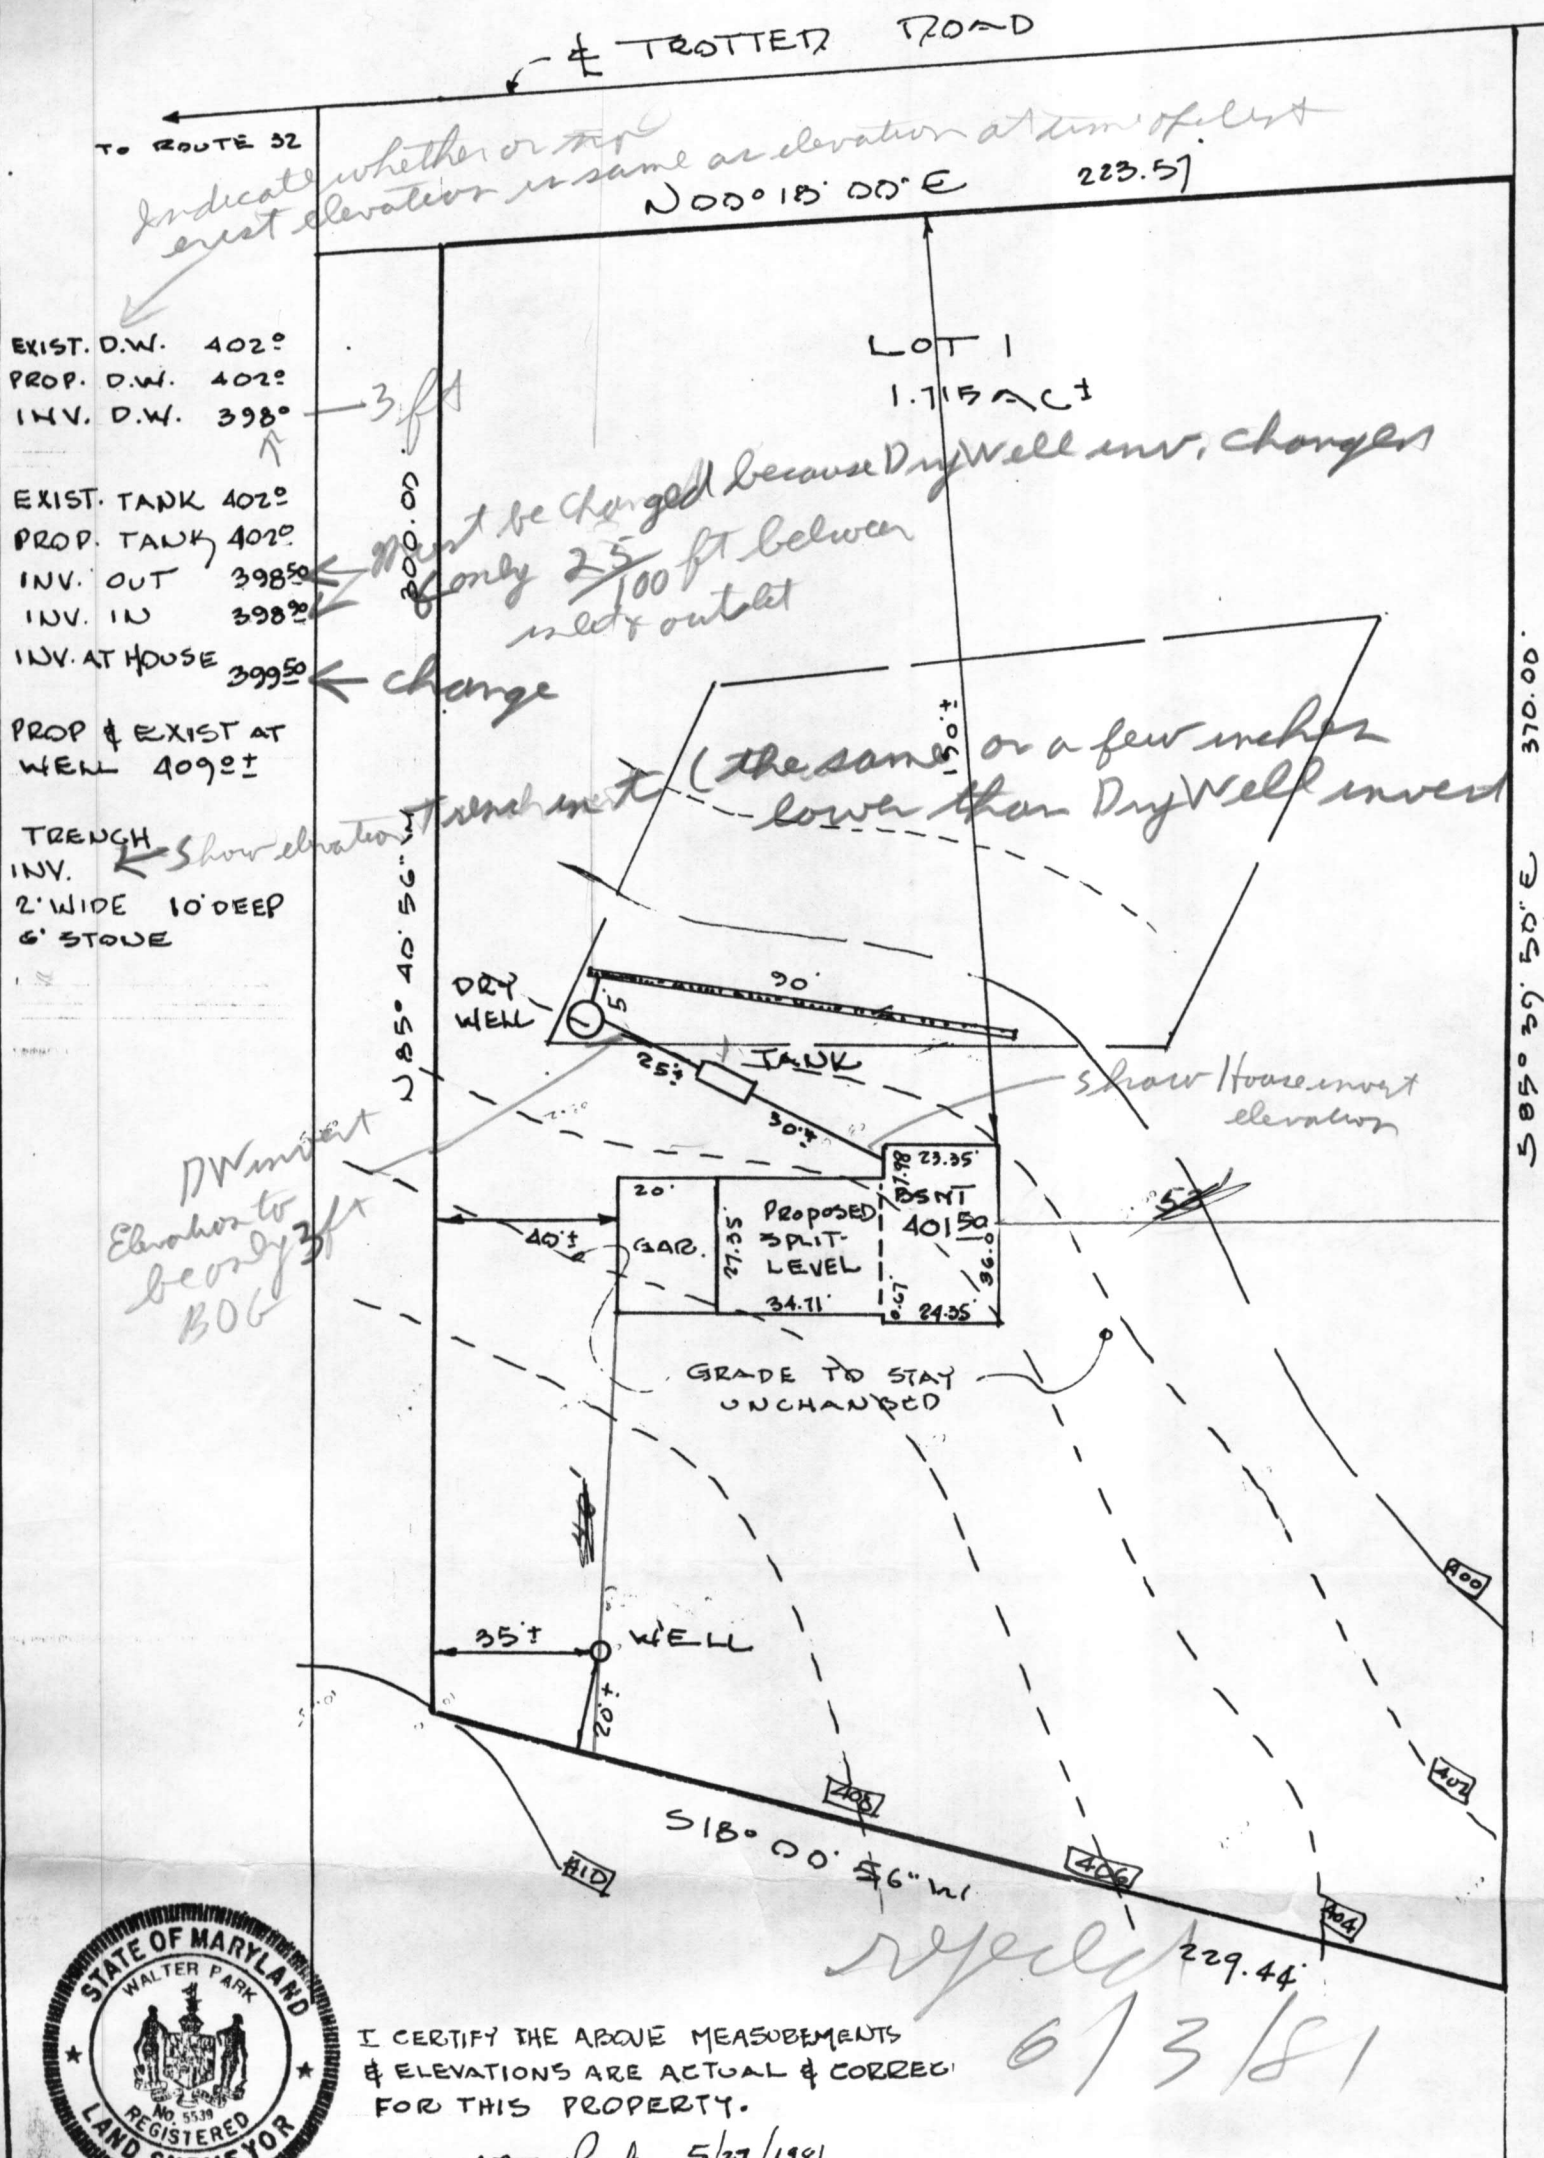 ℄ TROTTER ROAD
TO ROUTE 32
Indicate whether or not
exist elevation is same as elevation at time of test
N00°18'00"E 223.57'
EXIST. D.W. 402⁰
PROP. D.W. 402⁰
INV. D.W. 398⁰ — 3 ft
LOT 1
1.715 AC±
EXIST. TANK 402⁰
PROP. TANK 402⁰
INV. OUT 398⁵⁰
INV. IN
INV. AT HOUSE 399⁵⁰
Must be changed because Dry Well inv. changes
& only 25/100 ft between
inlet & outlet
change
300.00'
N85° 40' 56" W
PROP & EXIST AT
WELL 409⁰±
TRENCH
INV.
2' WIDE 10' DEEP
6' STONE
Show elevation Trench invert (the same or a few inches
lower than Dry Well invert
190'±
S 85° 39' 50" E 370.00'
DRY
WELL
5'
90'
25'±
TANK
30'±
Show House invert
elevation
DW invert
Elevation to
be only 3 ft
BOG
40'±
20'
GAR.
27.35'
PROPOSED
SPLIT-
LEVEL
34.71'
7.98
23.35'
BSMT
401⁵⁰
36.0
0.67
24.35'
52
GRADE TO STAY
UNCHANGED
35'±
WELL
20'±
400
402
404
406
408
410
S18°00'56"W
229.44'
6/3/81
STATE OF MARYLAND
WALTER PARK
No. 5539
REGISTERED
LAND SURVEYOR
I CERTIFY THE ABOVE MEASUREMENTS
& ELEVATIONS ARE ACTUAL & CORREC
FOR THIS PROPERTY.
5/27/1981